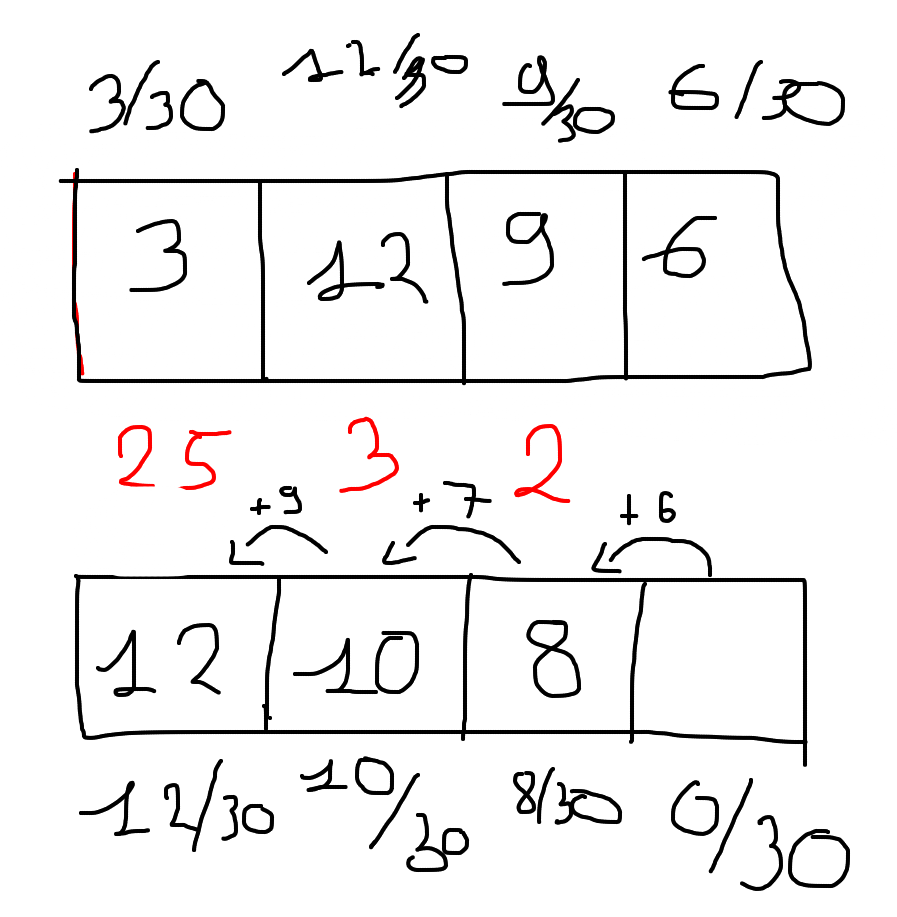 3/30 12/30 9/30 6/30
3 12 9 6
25 3 2
+9 +7 +6
12 10 8
12/30 10/30 8/30 0/30